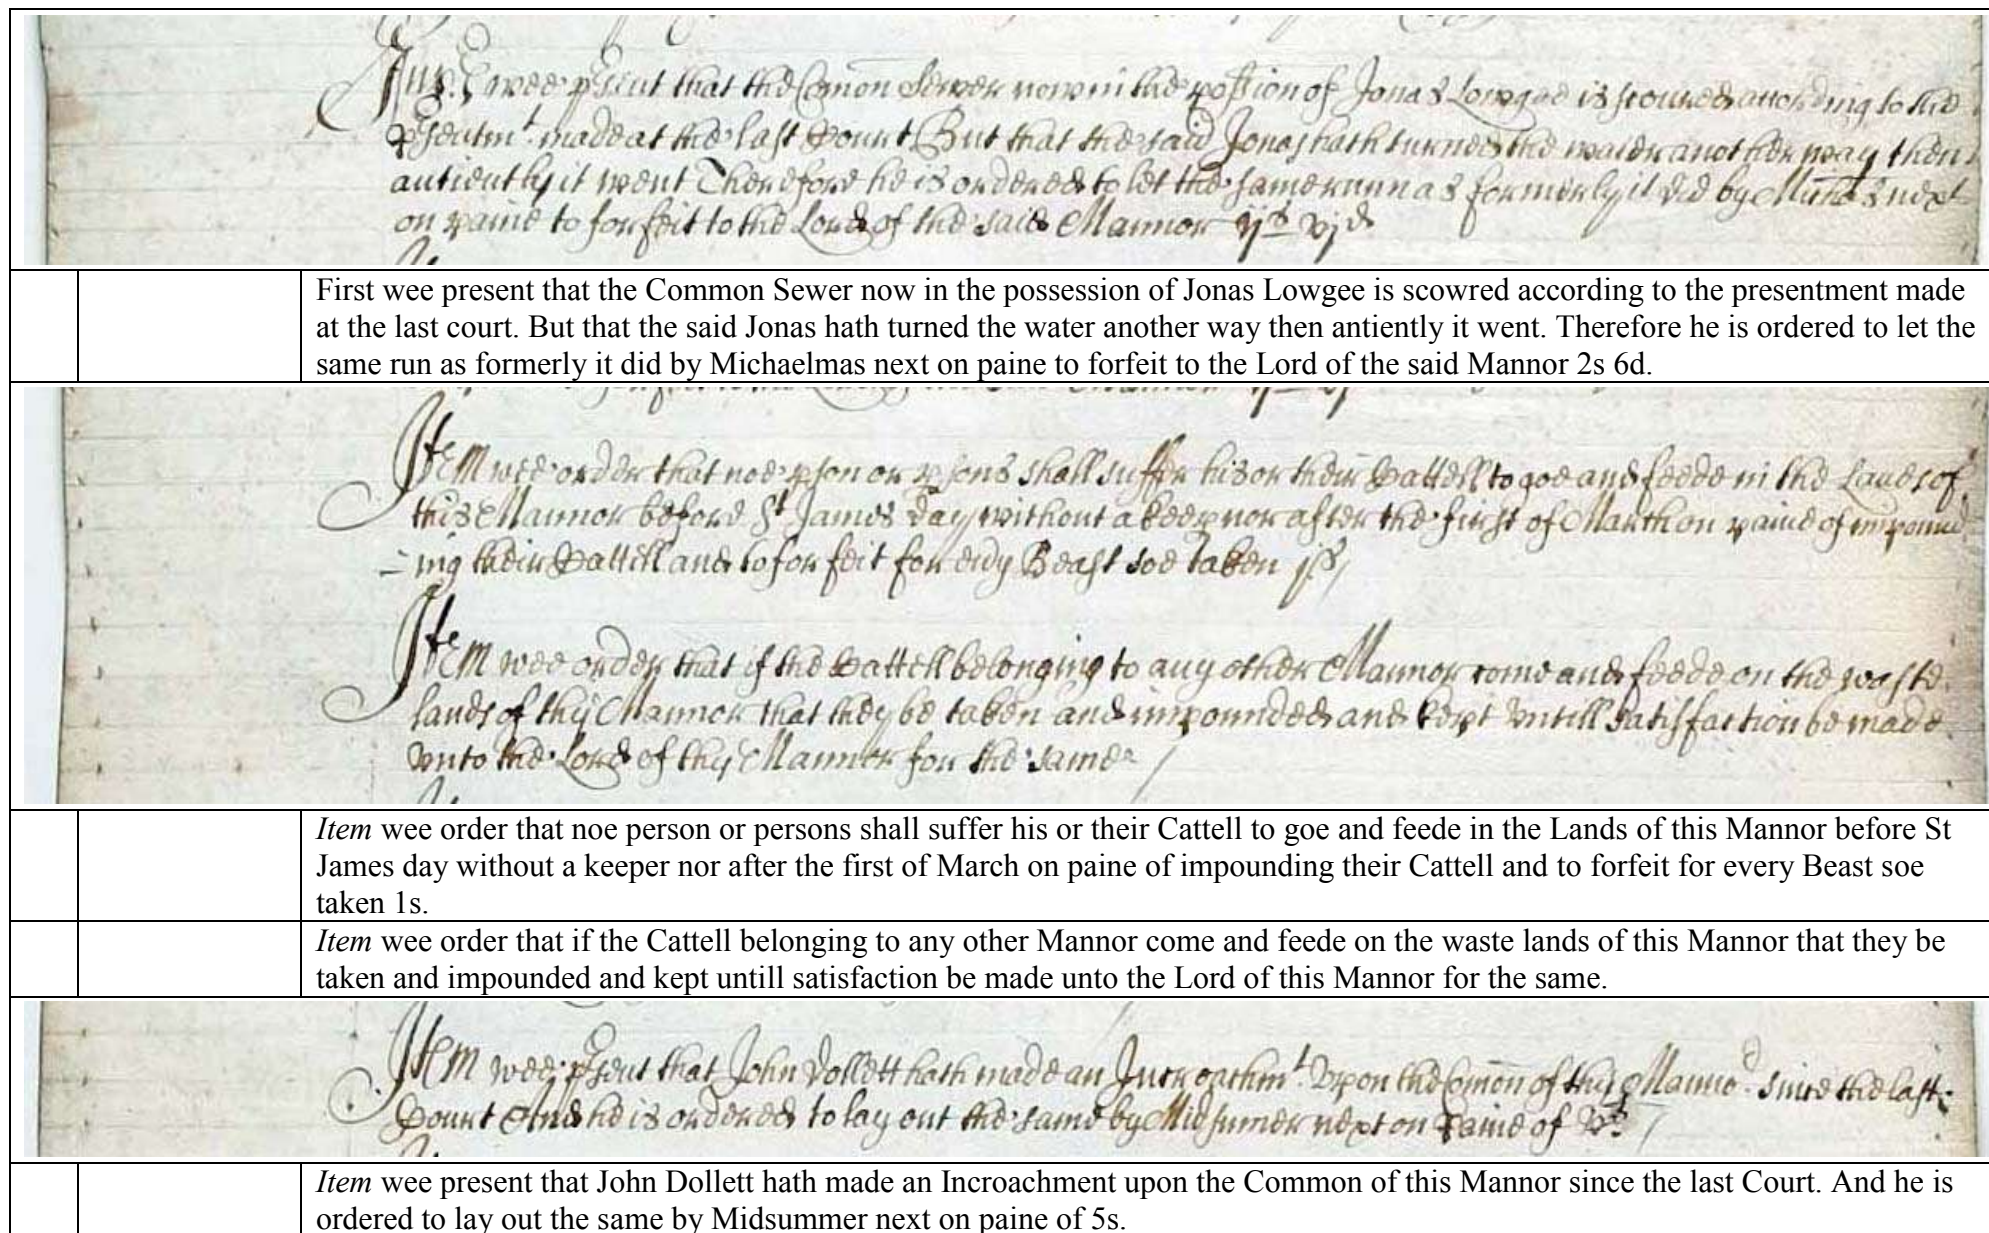 Imp. wee p̱sent that the Com̄on Sewer now in the possion of Jonas Lowgee is scoured according to the
p̱sentmt. made at the last Court But that the said Jonas hath turned the water another way then
antiently it went Therefore he is ordered to let the same runn as formerly it did by Michas next
on paine to forfeit to the Lord of the said Mannor ijs vjd
First wee present that the Common Sewer now in the possession of Jonas Lowgee is scowred according to the presentment made
at the last court. But that the said Jonas hath turned the water another way then antiently it went. Therefore he is ordered to let the
same run as formerly it did by Michaelmas next on paine to forfeit to the Lord of the said Mannor 2s 6d.
Item wee order that noe p̱son or p̱sons shall suffer his or their Cattell to goe and feede in the Lands of
this Mannor before St James day without a keep̱ nor after the first of March on paine of impound
=ing their Cattell and to forfeit for ev̄y Beast soe taken js/
Item wee order that if the Cattell belonging to any other Mannor come and feede on the waste
lands of this Mannor that they be taken and impounded and kept untill satisfaction be made
unto the Lord of this Mannor for the same /
Item wee order that noe person or persons shall suffer his or their Cattell to goe and feede in the Lands of this Mannor before St
James day without a keeper nor after the first of March on paine of impounding their Cattell and to forfeit for every Beast soe
taken 1s.
Item wee order that if the Cattell belonging to any other Mannor come and feede on the waste lands of this Mannor that they be
taken and impounded and kept untill satisfaction be made unto the Lord of this Mannor for the same.
Item wee p̱sent that John Dollett hath made an Incroachmt. upon the Com̄on of this Manno.r since the last
Court And he is ordered to lay out the same by Midsumer next on Paine of vs. /
Item wee present that John Dollett hath made an Incroachment upon the Common of this Mannor since the last Court. And he is
ordered to lay out the same by Midsummer next on paine of 5s.